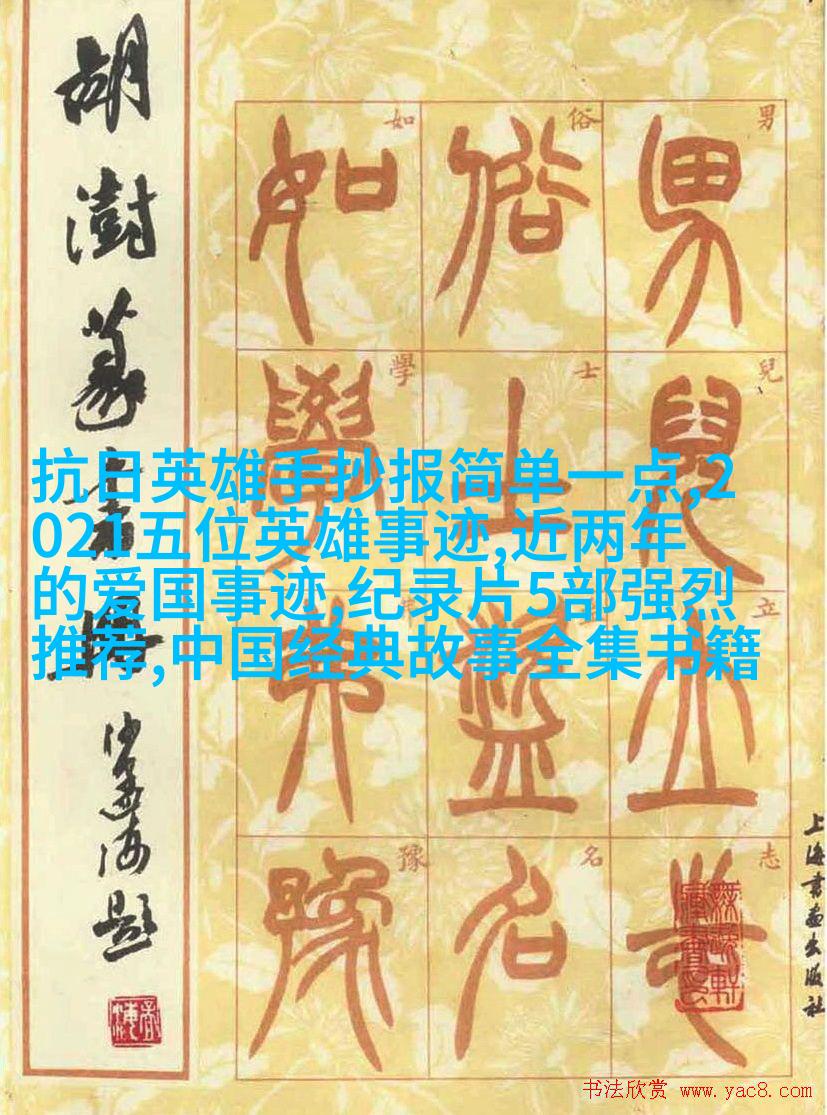 胡澍篆书
沙孟海題
男兒立志
俗士盜名
如學弗豫
男
兒
立
志
俗
士
名
如
學
豫
抗日英雄手抄报简单一点,2
021五位英雄事迹,近两年
的爱国事迹,纪录片5部强烈
推荐,中国经典故事全集书籍
上海书画出版社
书法欣赏 www.yac8.com